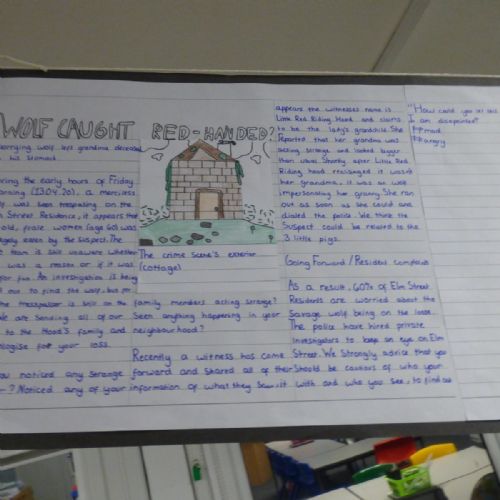 WOLF CAUGHT RED-HANDED?
horrifying wolf, but grandma deceased
his stomach
ring the early hours of Friday
orning (13.04.20), a merciless
lf was seen trespassing on the
Street Residence, it appears that
old, fraile women (age 60) was
agely eaten by the suspect. The
team is still unaware whether
was a reason or if it was
for fun. An investigation is being
out to find the wolf, but
the tresspasor is still on the
We are sending all our
to the Hood's family and
ologise for your loss.
ou noticed any strange
? Noticed any of your
The crime scene's exterior
(cottage)
family members acting strange?
Seen anything happening in your
neighbourhood?
Recently a witness has come
forward and shared all of their
information of what they saw, it
appears the witnesses name is
Little Red Riding Hood and claims
to be the lady's grandchild. She
Reported that her grandma was
acting strange and looked bigger
than usual. Shortly after Little Red
Riding hood realisinged it wasn't
her grandma, it was an wolf
impersonating her granny. She ran
out as soon as she could and
dialed the police. We think the
Suspect could be related to the
3 little pigs.
Going Forward / Resident complaints
As a result, 60% of Elm Street
Residents are worried about the
Savage wolf being on the loose.
The police have hired private
investigators to keep an eye on Elm
Street. We Strongly advice that you
Should be cautious of who your
with and who you see, to find out
"How could you let this
I am disapointed"
mad
angry